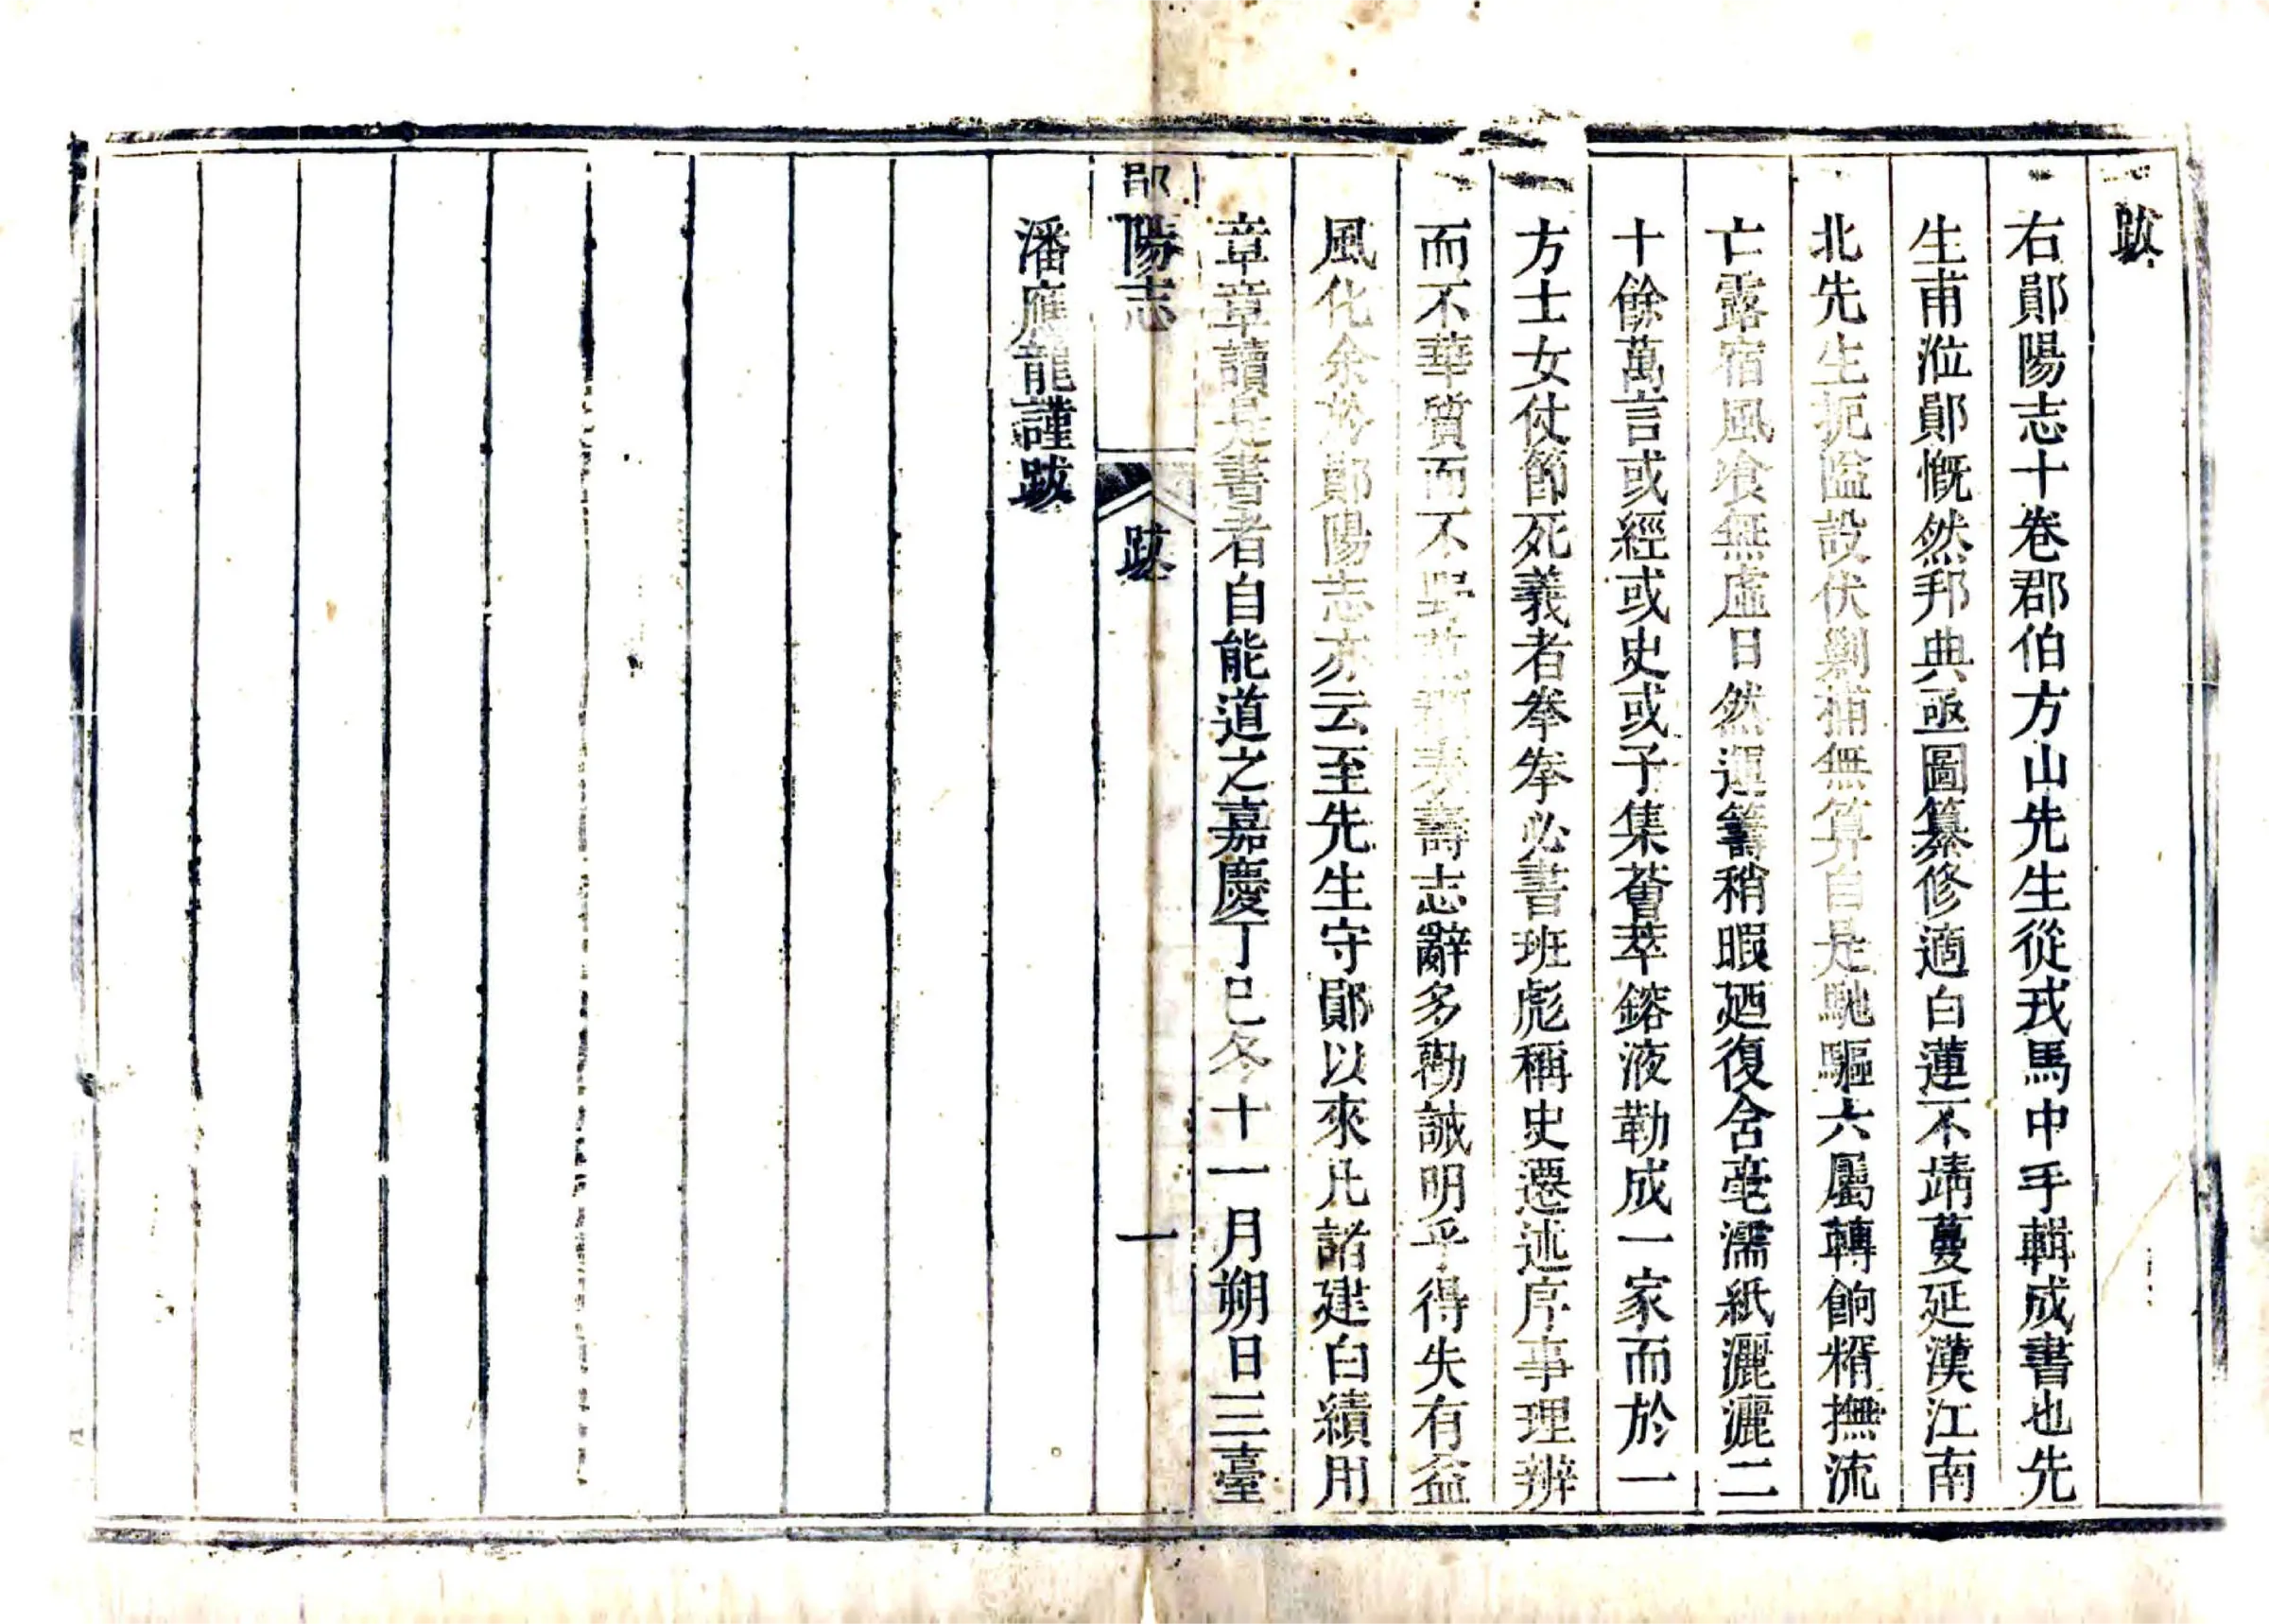 跋
右鄖陽志十卷郡伯方山先生從戎馬中手輯成書也先
生甫涖鄖慨然邦典亟圖纂修適白蓮不靖蔓延漢江南
北先生扼隘設伏剿捕無算自是馳驅六屬轉餉糈撫流
亡露宿風飡無虛日然運籌稍暇廼復含毫濡紙灑灑二
十餘萬言或經或史或子集薈萃鎔液勒成一家而於一
方士女仗節死義者拳拳必書班彪稱史遷述序事理辨
而不華質而不野范頵表壽志辭多勸誡明乎得失有益
風化余於鄖陽志亦云至先生守鄖以來凡諸建白績用
章章讀是書者自能道之嘉慶丁巳冬十一月朔日三臺
鄖陽志
跋
一
潘應龍謹跋